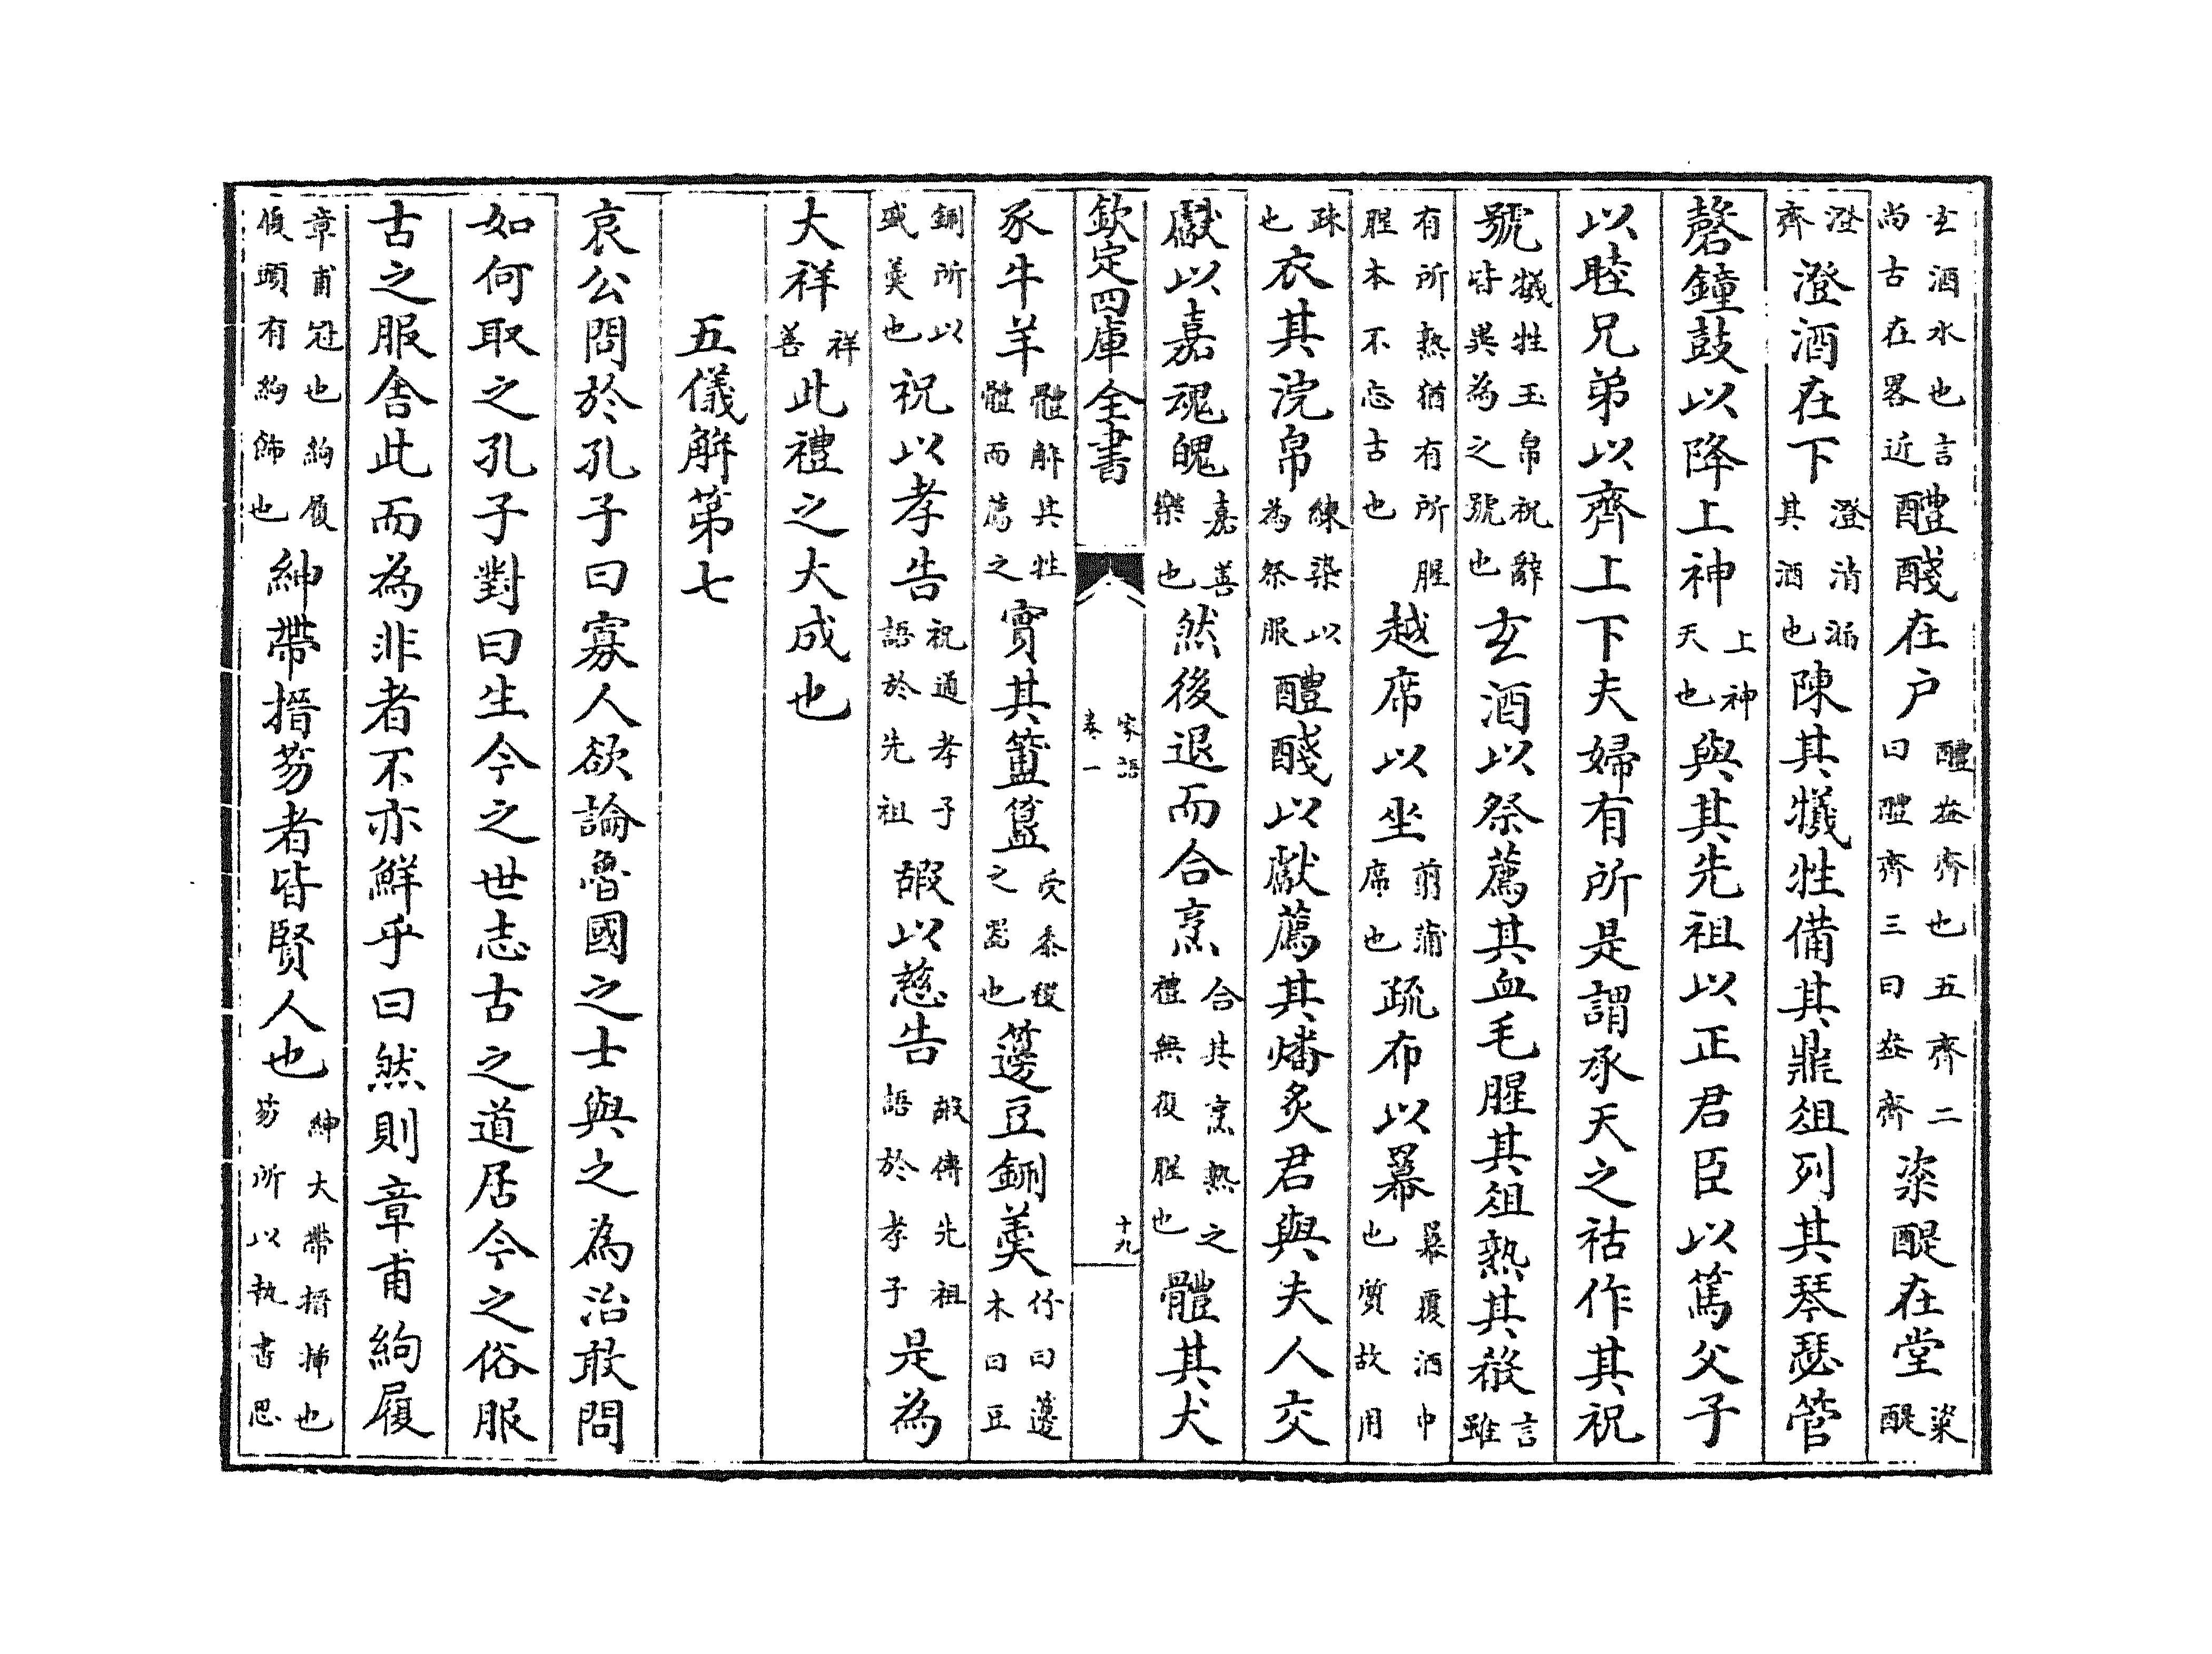 玄酒水也言尚古在畧近醴醆在户醴盎齊也五齊二曰醴齊三曰盎齊粢醍在堂粢醍
澄齊澄酒在下澄清漏其酒也陳其犧牲備其鼎俎列其琴瑟管
磬鐘鼓以降上神上神天也與其先祖以正君臣以篤父子
以睦兄弟以齊上下夫婦有所是謂承天之祜作其祝
號犧牲玉帛祝辭皆異為之號也玄酒以祭薦其血毛腥其俎熟其殽言雖
有所熟猶有所腥腥本不忘古也越席以坐翦蒲席也疏布以冪冪覆酒巾也質故用
疎也衣其浣帛練染以為祭服醴醆以獻薦其燔炙君與夫人交
獻以嘉魂魄嘉善樂也然後退而合烹合其烹熟之禮無復腥也體其犬
欽定四庫全書 家語卷一 十九
豕牛羊體解其牲體而薦之實其簠簋受黍稷之器也籩豆鉶羹竹曰籩木曰豆
鉶所以盛羹也祝以孝告祝通孝子語於先祖嘏以慈告嘏傳先祖語於孝子是為
大祥祥善此禮之大成也
五儀解第七
哀公問於孔子曰寡人欲論魯國之士與之為治敢問
如何取之孔子對曰生今之世志古之道居今之俗服
古之服舍此而為非者不亦鮮乎曰然則章甫絇履
章甫冠也絇履履頭有絇飾也紳帶搢笏者皆賢人也紳大帶搢揷也笏所以執書思